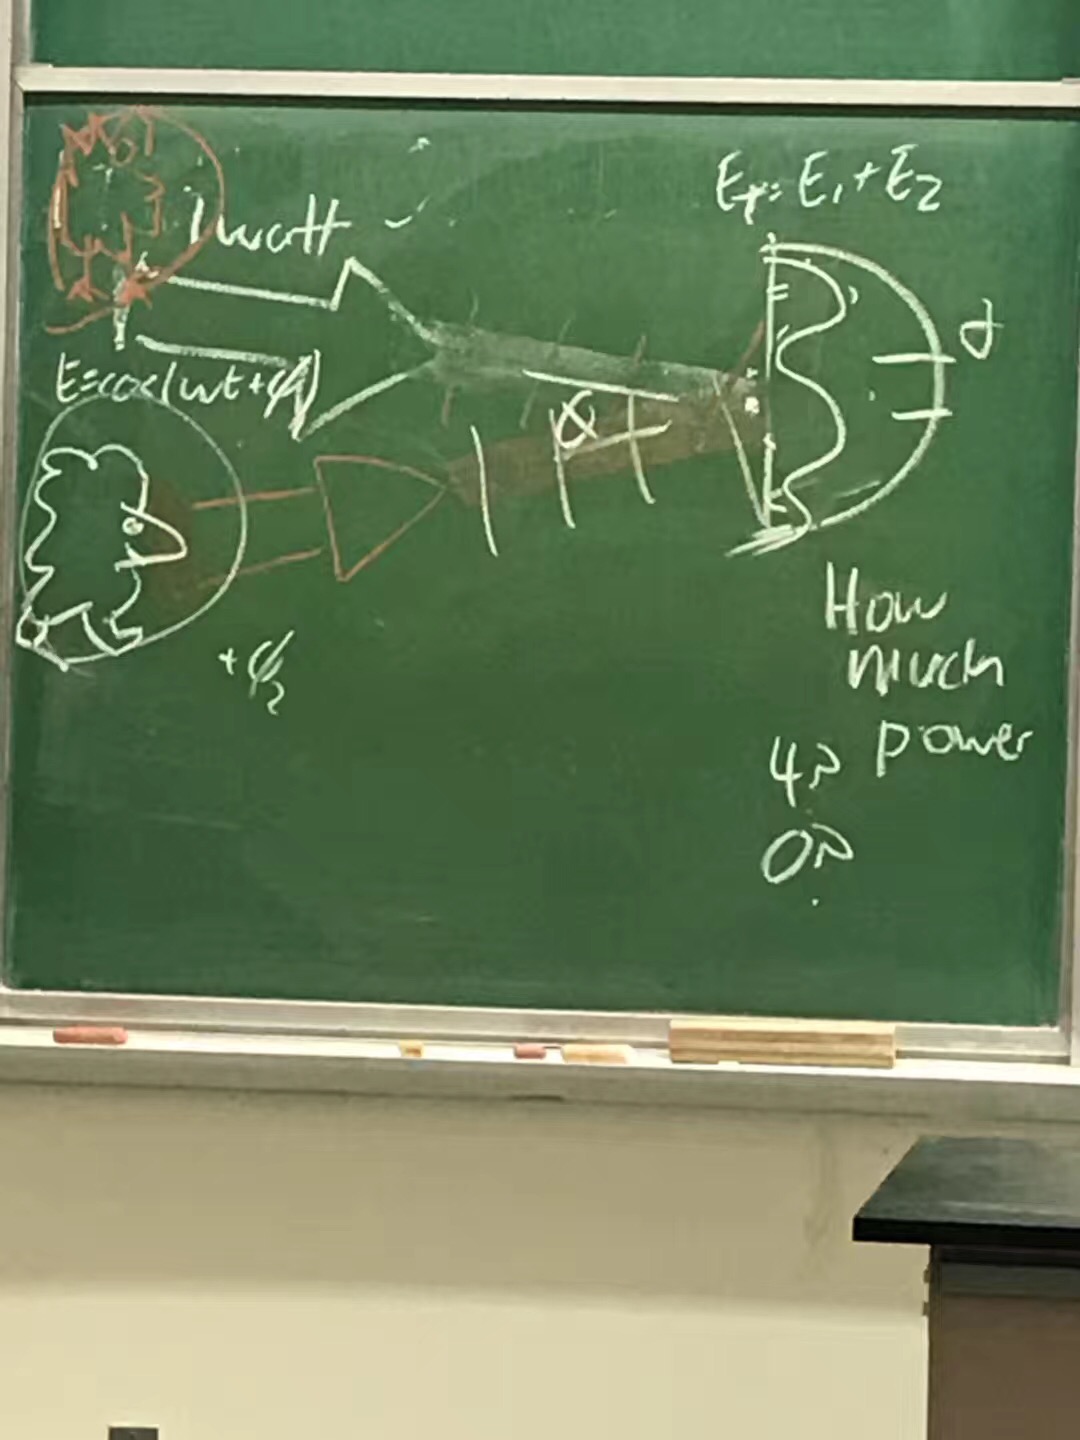 1 watt
E_T = E_1 + E_2
E=cos(ωt+φ_1)
α
d
+φ_2
How
much
power
4?
0?